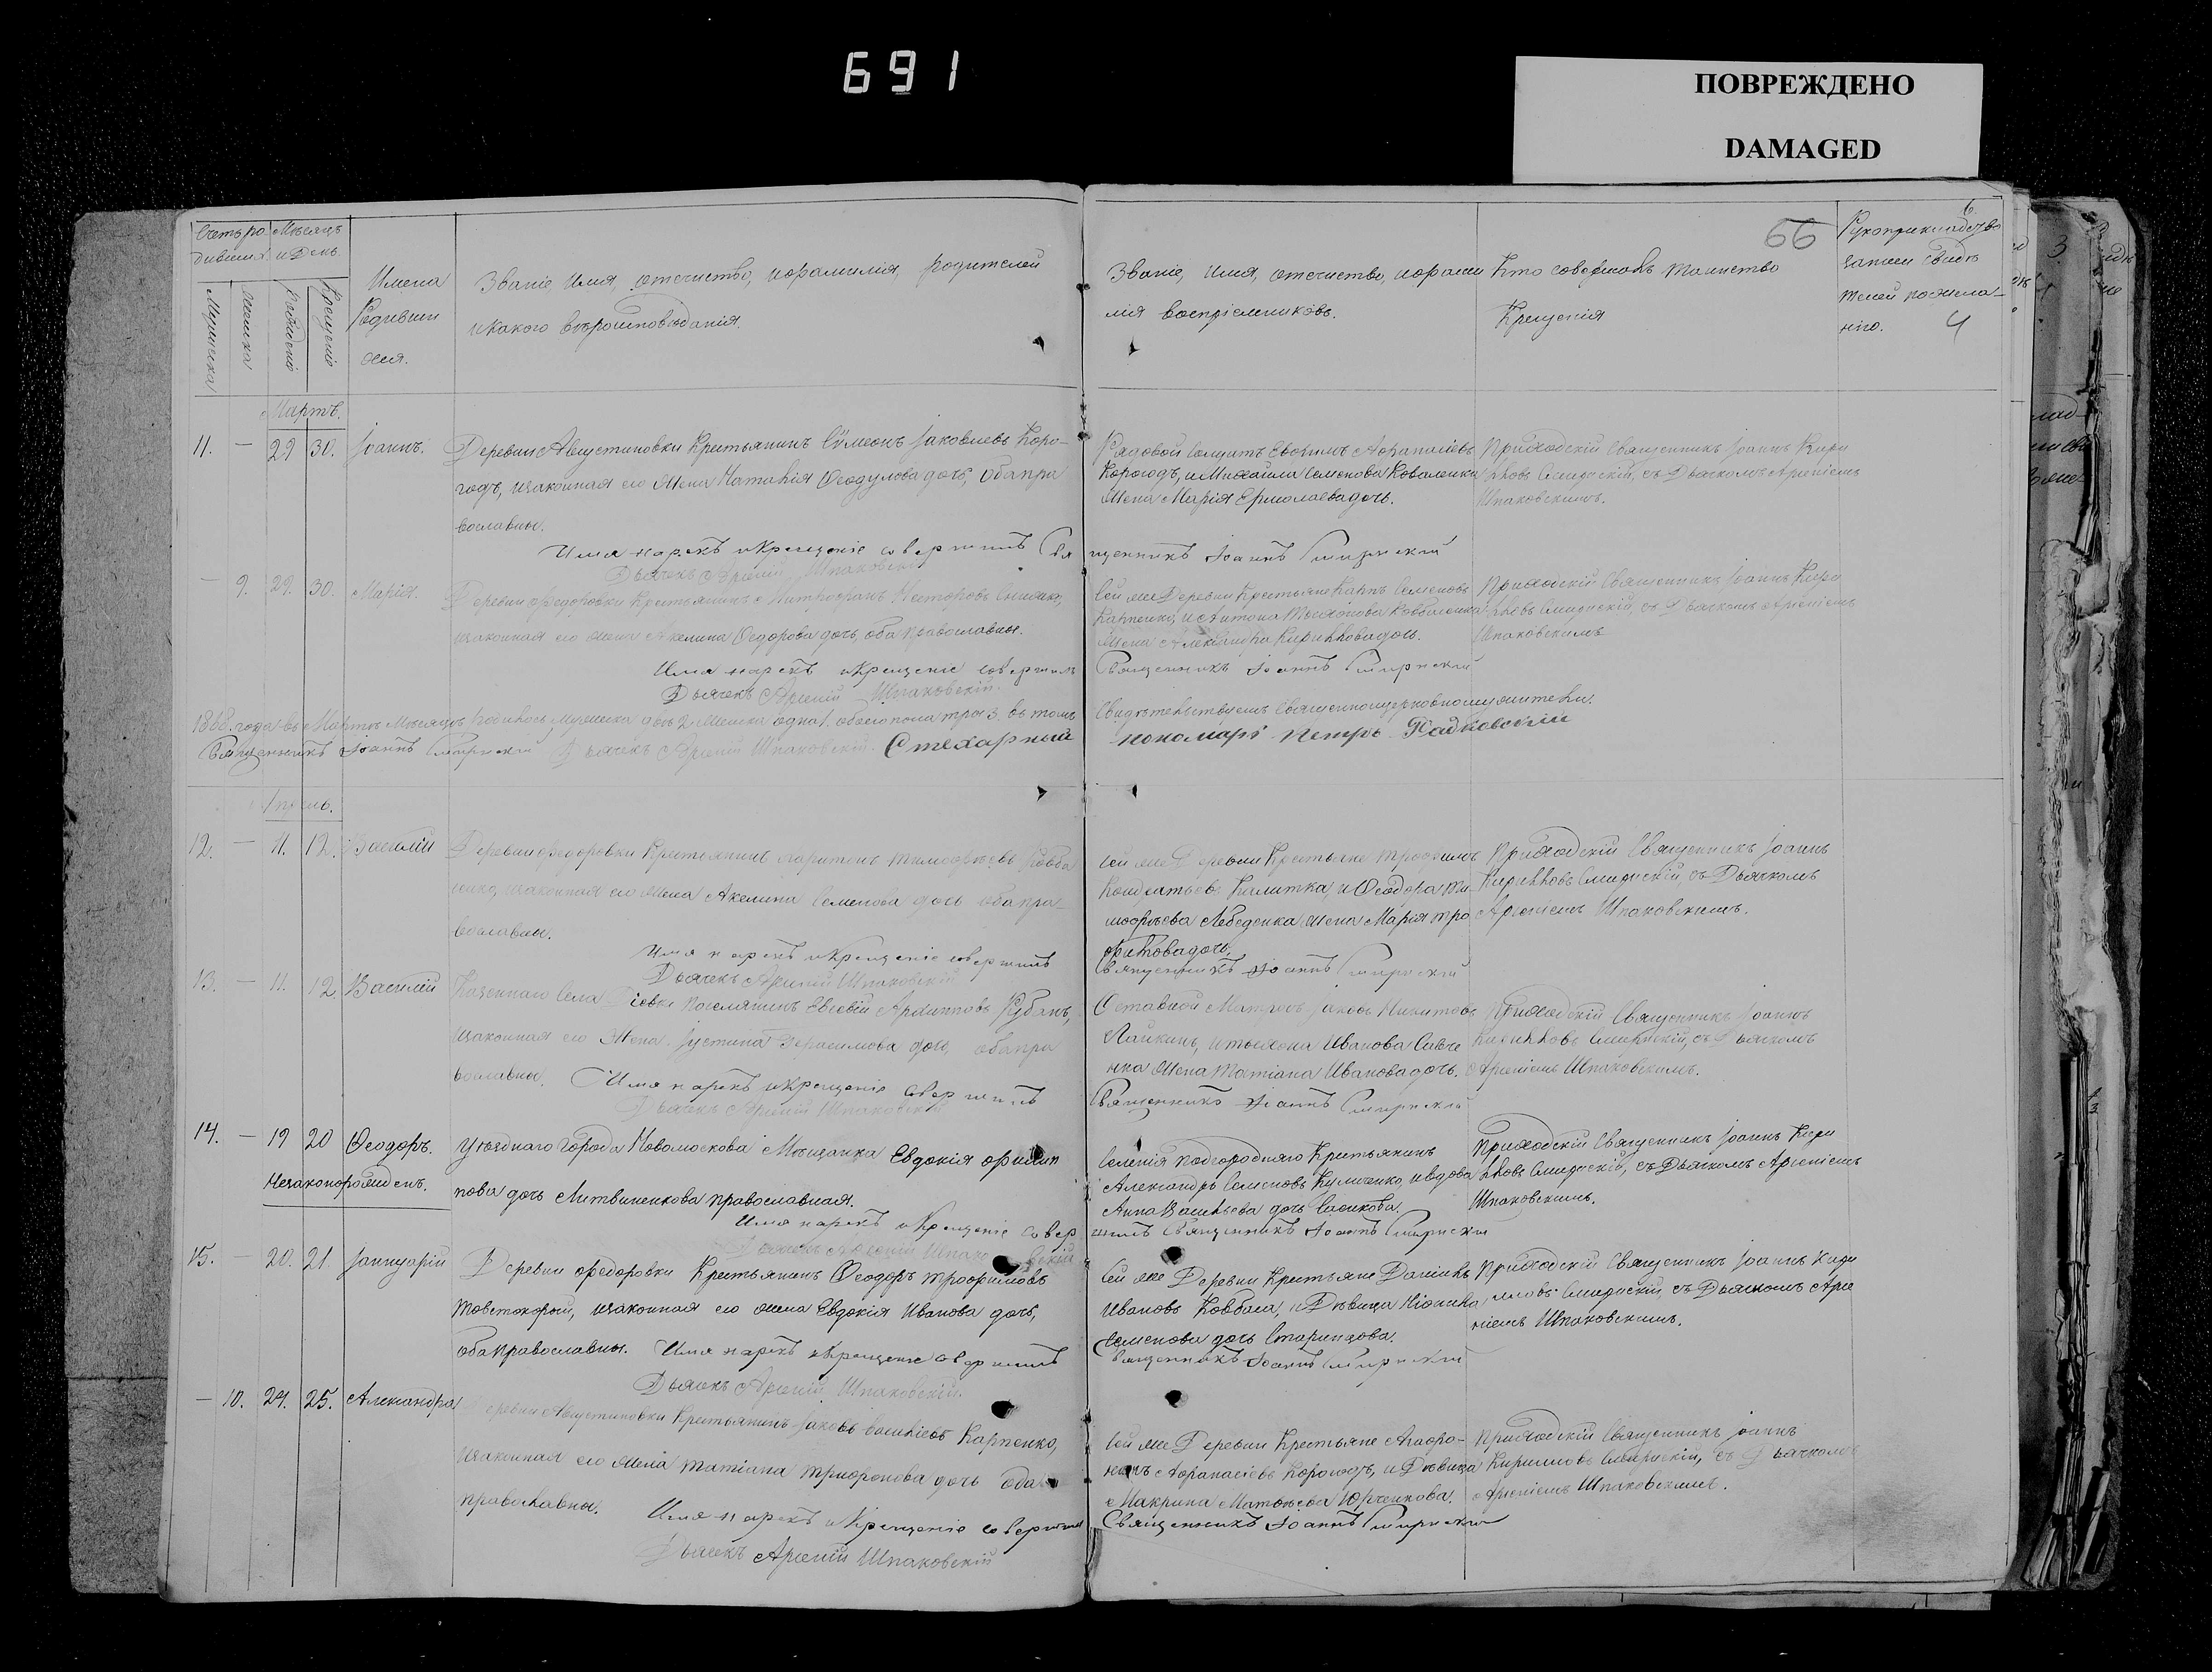 691
ПОВРЕЖДЕНО
DAMAGED
66
6
4
Счетъ ро
дившихъ
Мѣсяцъ
и День.
Мужеска
Женска
Рожденія
Крещенія
Имена
Родивши
хся.
Званіе, Имя, отечиство, и фамилія, родителей
и какого вѣроисповѣданія.
Званіе, имя, отечиство, и фами
лія воспріемниковъ.
Кто совершалъ таинство
Крещенія
Рукоприкладство
записи свидѣ
телей по жела-
нію.
Мартъ.
11. — 29 30. Іоаннъ.
Деревни Августиновки Крестьянинъ Сѵмеонъ Іаковлевъ Коро-
годъ, и законная его жена Наталія Ѳеодулова дочь, оба пра
вославны.
Рядовой Солдатъ Евфимъ Афанасіевъ
Корогодъ, и Михаила Семенова Коваленка
Жена Марія Ермолаева дочь.
Приходскій Священникъ Іоаннъ Кири
лловъ Смирнскій, съ Дьячкомъ Арсеніемъ
Шпаковскимъ.
Имя нарекъ и Крещеніе совершилъ Священникъ Іоаннъ Смирнскій
Дьячекъ Арсеній Шпаковскій
— 9. 29. 30. Марія.
Деревни Федоровки Крестьянинъ Митрофанъ Несторовъ
и законная его жена Акелина Ѳедорова дочь, оба православны.
Сей же Деревни Крестьяне Карпъ Семеновъ
Карпенко, и Антона Коваленка
Жена Александра Кириллова дочь.
Приходскій Священникъ Іоаннъ Кири
лловъ Смирнскій, съ Дьячкомъ Арсеніемъ
Шпаковскимъ
Имя нарекъ и Крещеніе совершилъ Священникъ Іоаннъ Смирнскій
Дьячекъ Арсеній Шпаковскій.
1868. года въ Мартѣ Мѣсяцѣ родилось мужеска два 2. Женска одна 1. обоего пола три 3. въ томъ
Свидѣтельствуемъ Священноцерковнослужители.
Священникъ Іоаннъ Смирнскій Дьячекъ Арсеній Шпаковскій. Стехарный
пономарь Петръ Радковскій
Апрѣль.
12. — 11. 12. Василій
Деревни Федоровки Крестьянинъ Харитонъ Тимофѣевъ Ковба
сенко, и законная его жена Акелина Семенова дочь оба пра-
вославны.
Сей же Деревни Крестьяне Трофимъ
Кондратьевъ Калитка, и Ѳеодора Ти-
мофѣева Лебеденка жена Марія Тро
фимова дочь.
Приходскій Священникъ Іоаннъ
Кирилловъ Смирнскій, съ Дьячкомъ
Арсеніемъ Шпаковскимъ.
Имя нарекъ и Крещеніе совершилъ
Священникъ Іоаннъ Смирнскій
Дьячекъ Арсеній Шпаковскій
13. — 11. 12. Василій
Казеннаго Села Діевки поселянинъ Евсевій Архиповъ Рубанъ,
и законная его Жена Іустина Герасимова дочь, оба пра
вославны. Имя нарекъ и Крещеніе совершилъ
Отставной Матросъ Іаковъ Никитовъ
Лайкинъ, и Тихона Иванова Савче
нка жена Татіана Иванова дочь.
Священникъ Іоаннъ Смирнскій
Приходскій Священникъ Іоаннъ
Кирилловъ Смирнскій, съ Дьячкомъ
Арсеніемъ Шпаковскимъ.
Дьячекъ Арсеній Шпаковскій
14. — 19 20 Ѳеодоръ.
Незаконорожденъ.
Уѣзднаго Города Новомоскова Мѣщанка Евдокія Филип
пова дочь Литвиненкова православная.
Селенія Подгородняго Крестьянинъ
Александръ Семеновъ Куличенко, и вдова
Анна Васильева дочь
Приходскій Священникъ Іоаннъ Кири
лловъ Смирнскій, съ Дьячкомъ Арсеніемъ
Шпаковскимъ.
Имя нарекъ и Крещеніе совершилъ Священникъ Іоаннъ Смирнскій
Дьячекъ Арсеній Шпаковскій
15. — 20. 21. Іаннуарій
Деревни Федоровки Крестьянинъ Ѳеодоръ Трофимовъ
Товстокорой, и законная его жена Евдокія Иванова дочь,
оба православны. Имя нарекъ и Крещеніе совершилъ
Сей же Деревни Крестьяне Даніилъ
Ивановъ Ковбаса, и Дѣвица
Семенова дочь
Священникъ Іоаннъ Смирнскій
Приходскій Священникъ Іоаннъ Кири
лловъ Смирнскій, съ Дьячкомъ Арсе
ніемъ Шпаковскимъ.
Дьячекъ Арсеній Шпаковскій.
— 10. 24. 25. Александра
Деревни Августиновки Крестьянинъ Іаковъ Васильевъ Карпенко,
и законная его жена Татіана Трифонова дочь оба
православны.
Сей же Деревни Крестьяне Агафо-
никъ Афанасіевъ Корогодъ, и Дѣвица
Макрина Матвѣева Юрченкова.
Приходскій Священникъ Іоаннъ
Кирилловъ Смирнскій, съ Дьячкомъ
Арсеніемъ Шпаковскимъ.
Имя нарекъ и Крещеніе совершилъ Священникъ Іоаннъ Смирнскій
Дьячекъ Арсеній Шпаковскій